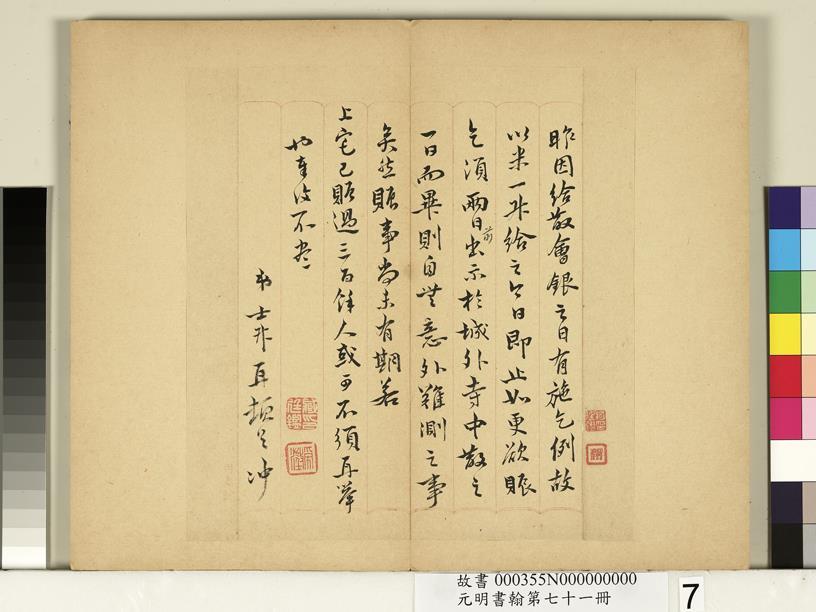 昨因給散會銀之日有施乞例故
以米一升給之今日即止如更欲賑
乞須兩日前出示於城外寺中散之
一日而畢則自無意外難測之事
矣然賑事尚未有期若
上宅已賑過三百餘人或可不須再舉
也草次不盡
弟士昇再頓足沖
故書 000355N000000000
元明書翰第七十一冊
7